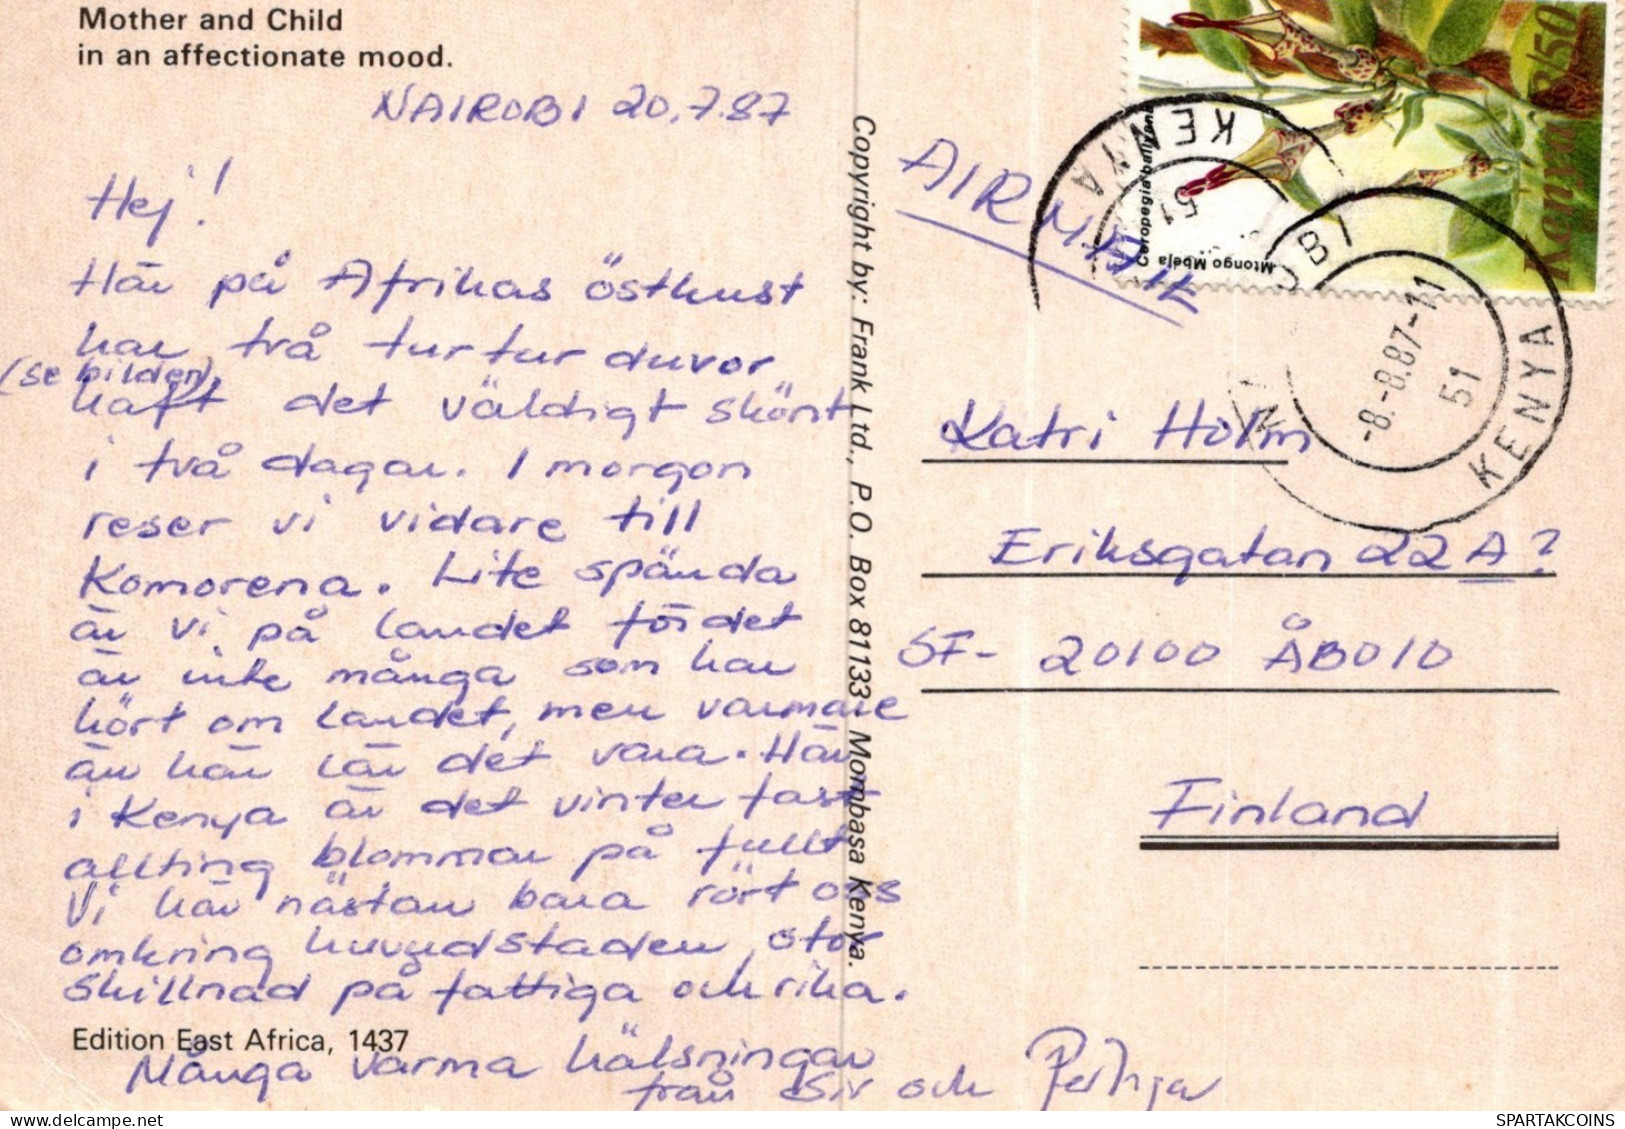 Mother and Child
in an affectionate mood.
NAIROBI 20.7.87
Hej!
Här på Afrikas östkust
har två turturduvor
(se bilden)
haft det väldigt skönt
i två dagar. I morgon
reser vi vidare till
Komorena. Lite spända
är vi på landet för det
är inte många som har
hört om landet, men varmare
än här lär det vara. Här
i Kenya är det vinter fast
allting blommar på fullt
Vi har nästan bara rört oss
omkring huvudstaden, stor
skillnad på fattiga och rika.
Edition East Africa, 1437
Många varma hälsningar
från Siv och
Copyright by: Frank Ltd., P.O. Box 81133 Mombasa Kenya.
AIR MAIL
Kenya 3/50
Mtongo Mbeja
KENYA
51
-8.-8.87-11
51
KENYA
Katri Holm
Eriksgatan 22 A?
SF- 20100 ÅBO 10
Finland
SPARTAKCOINS